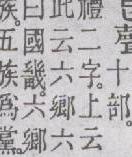 聲十部。
禮二字。上云
此云六鄉六
曰國畿。六鄉
族。五族爲黨。